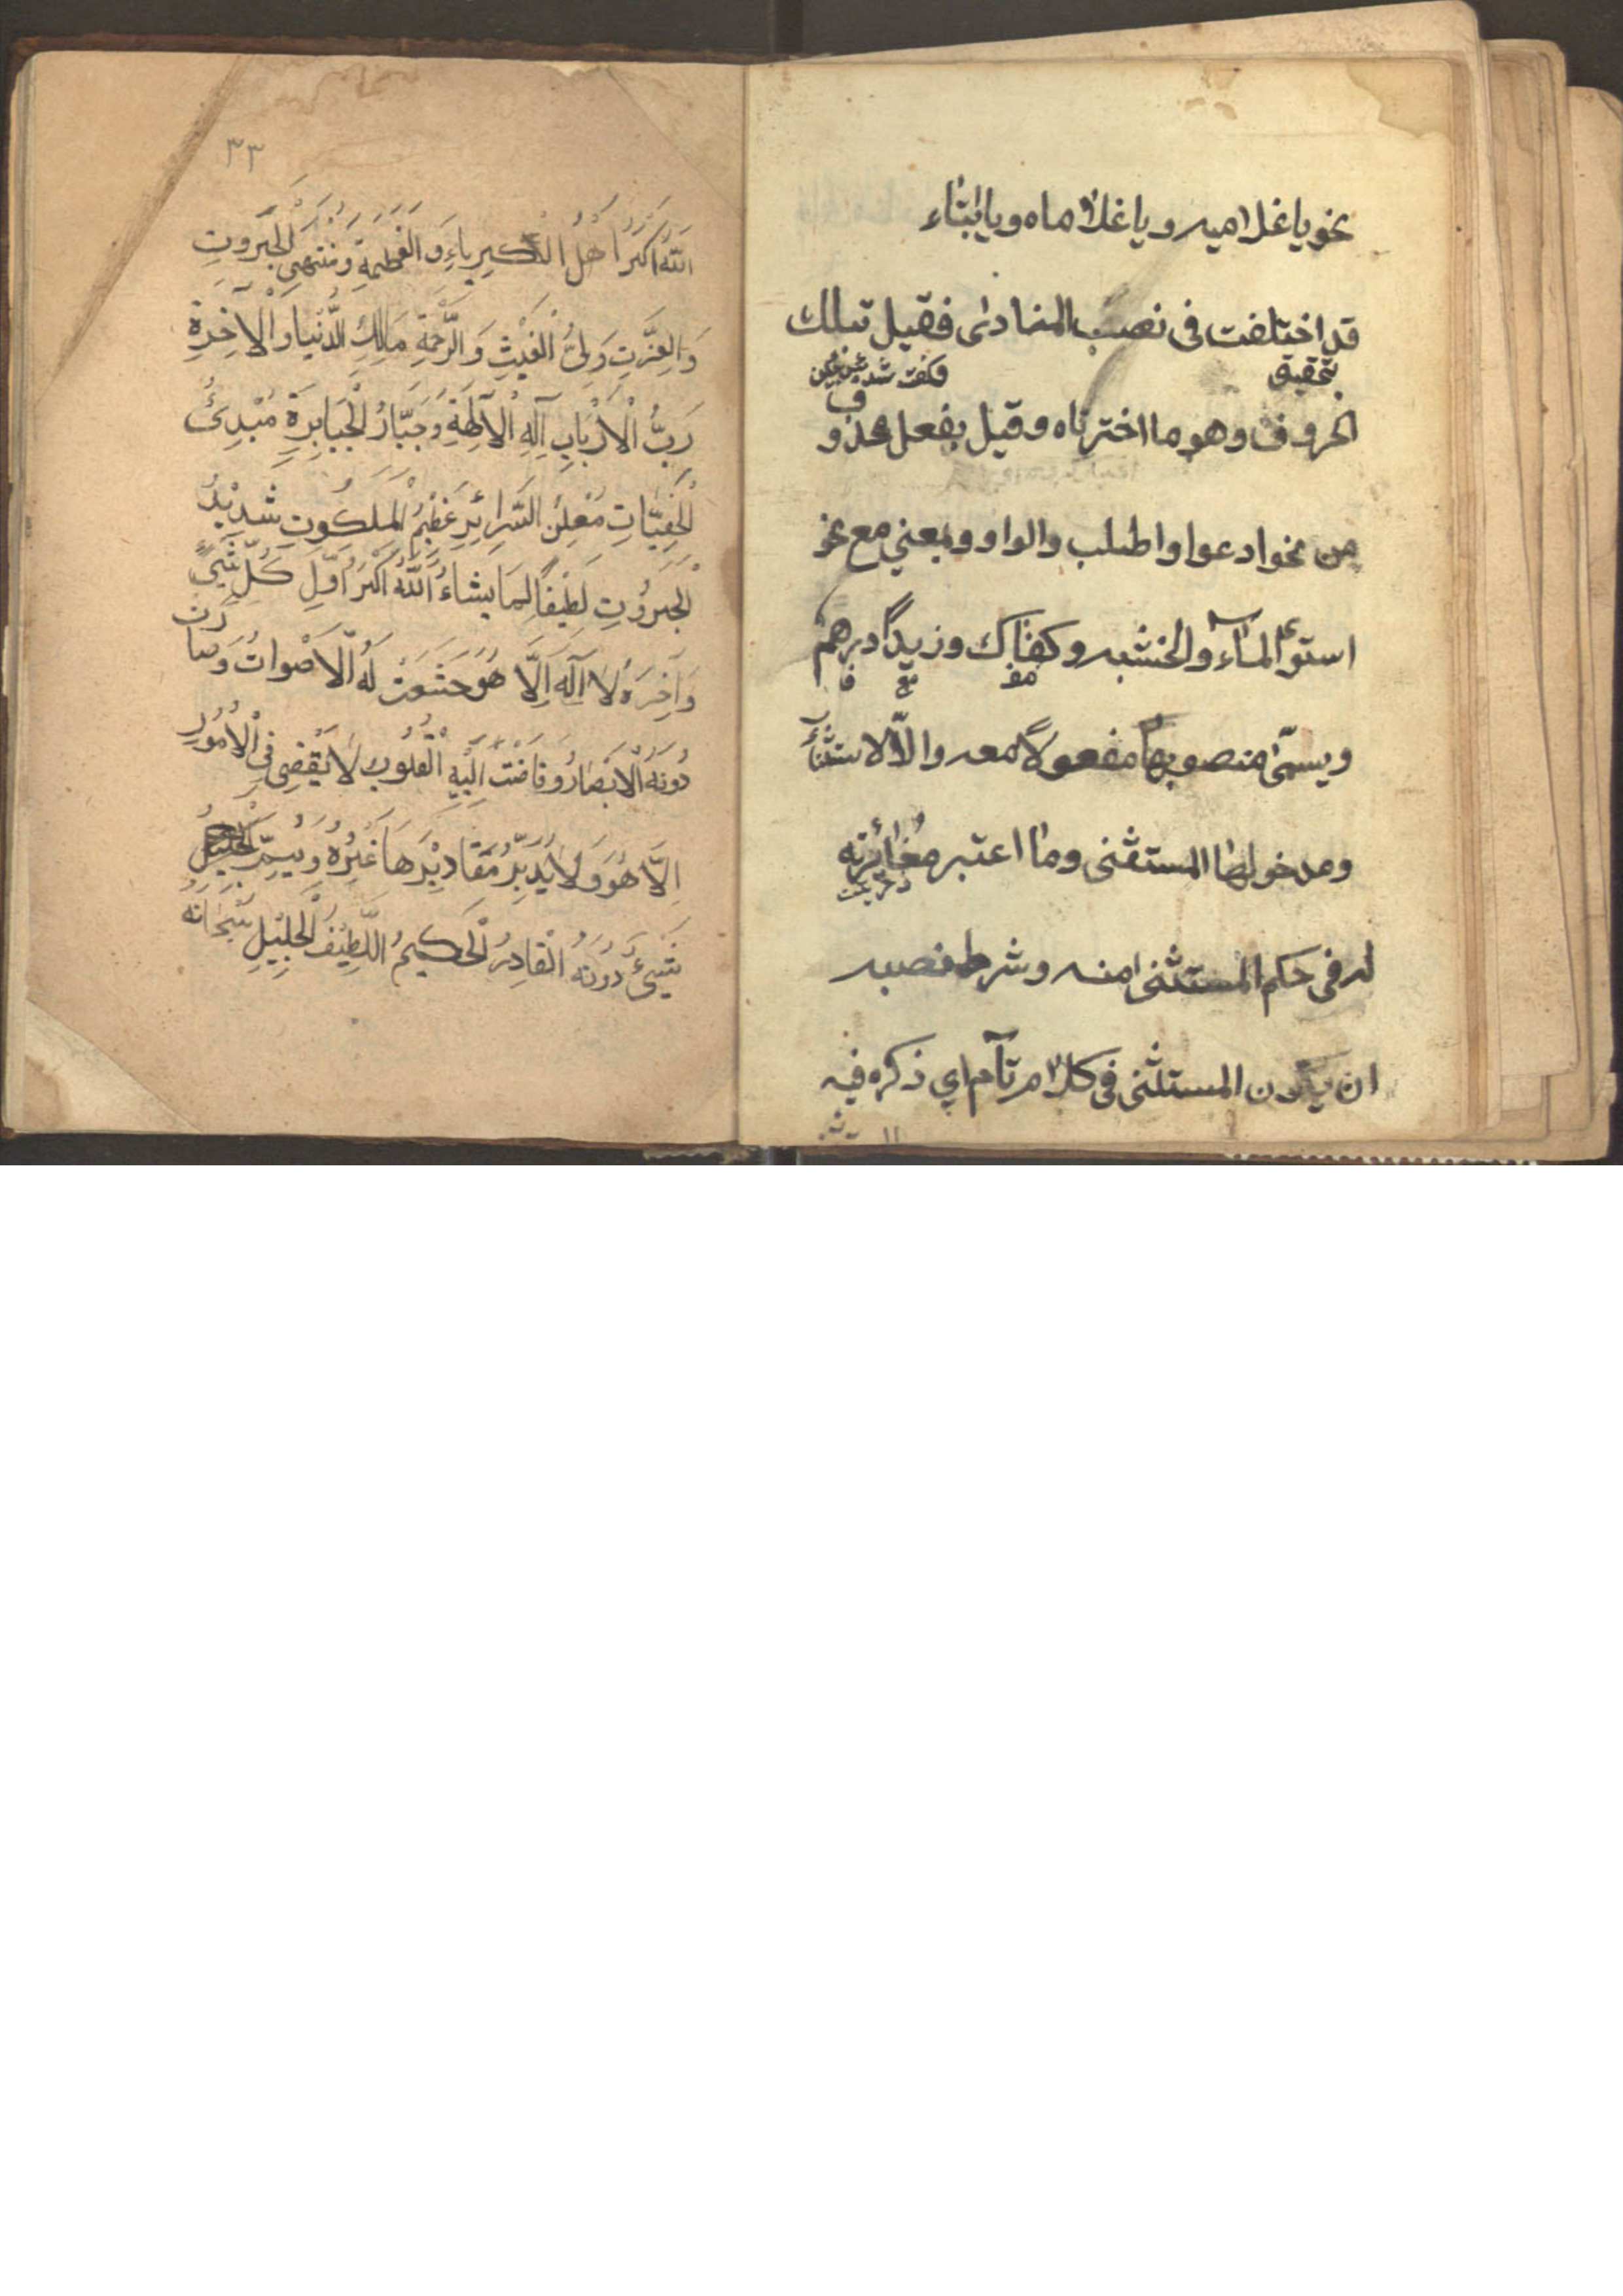 نحو ياغلاميه وياغلاماه ويا ابتاء
قد اختلفت فى نصب المنادى فقيل تىلك
بتحقيق
الحروف وهو ما اخترناه وقيل بفعل محذوف
من نحو ادعوا واطلب والواو وبمعني مع نحو
استوى الماء والخشبه وكفاك وزيدًا درهم
ويسمّى منصوبها مفعولاً معه والّا للاستثناء
ومدخولها المستثنى وما اعتبر مغائرته
له فى حكم المستثنى منه وشرط نصبه
ان يكون المستثنى فى كلام تآم اي ذكره فيه
٣٣
اَللهُ اَكْبَرُ اَهْلُ الْكِبرِياءِ وَ الْعَظَمَةِ وَ مُنْتَهىَ الْجَبَروتِ
وَالعِزَّتِ وَلِىُّ الْغَيْثِ وَ الرَّحْمَةِ مَالِكِ الدُّنْيا وَالْآخِرَةِ
رَبُّ الْاَرْبَابِ آلِهِ الْآلِهَةِ وَجَبَّارُ الْجَبَابِرَةِ مُبْدِئُ
الْخَفِيَّاتِ مُعْلِنُ السَّرائِرِ عَظِيْمُ الْمَلَكُوتِ شَدِيْدُ
الْجَبَرُوتِ لَطِيْفاً لِمَا يشاءُ اَللهُ اَكْبَرُ اَوَّلِ كُلِّ شَيْءٍ
وَآخِرَهُ لَا آلٰهَ اِلَّا هُوَ خَشَعَتْ لَهُ الْاَصْواتُ وَصَارَت
دُونَهُ الْاَبْصَارُ وفَاضَتْ اِلَيْهِ الْقُلُوب لَا يَقْضِى فِى الْاُمُورِ
اِلَّا هُوَ وَلَا يُدَبِّرُ مَقَادِيْرَهَا غَيْرُهُ وَ يُتِمّ
شَيْئ دُونَهُ الْقادِرُ الْحَكيمُ اللَّطِيْفُ الْجَلِيْلِ سُبْحَانَهُ